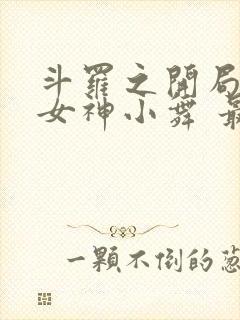 斗羅之開局
女神小舞 最
一顆不倒的蔥